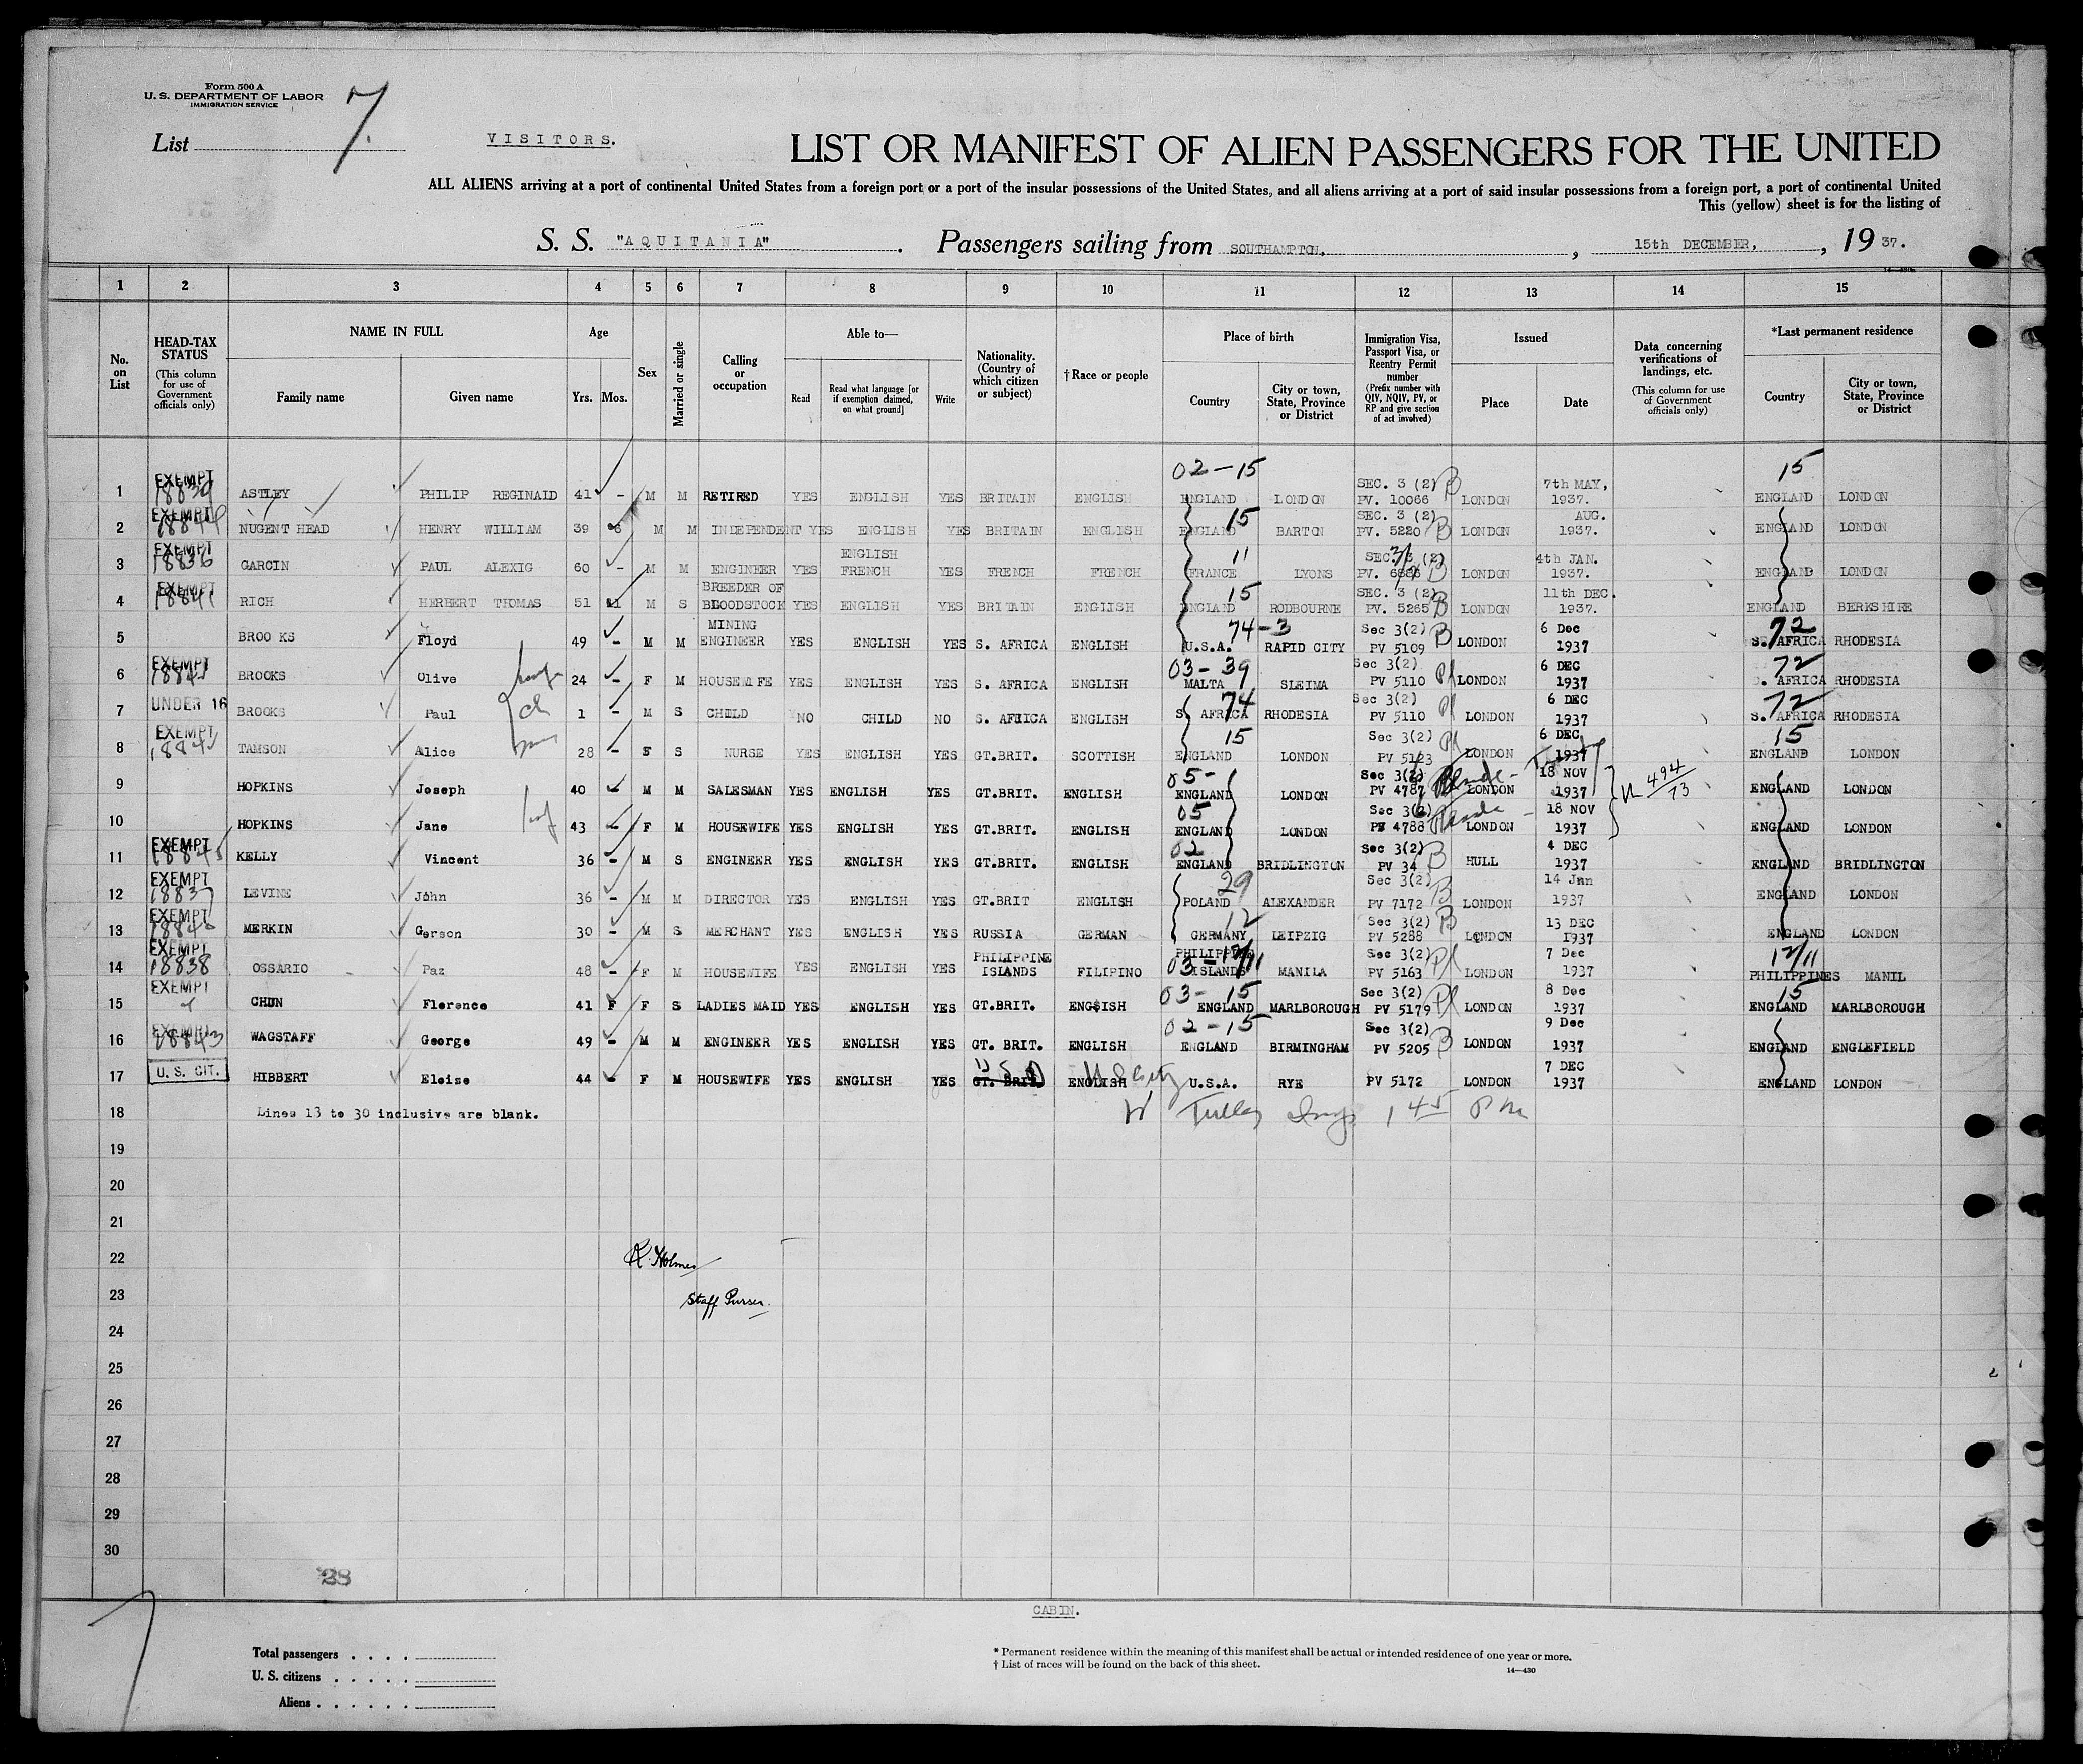 Form 500 A
U. S. DEPARTMENT OF LABOR
IMMIGRATION SERVICE
List 7.
VISITORS.
LIST OR MANIFEST OF ALIEN PASSENGERS FOR THE UNITED
ALL ALIENS arriving at a port of continental United States from a foreign port or a port of the insular possessions of the United States, and all aliens arriving at a port of said insular possessions from a foreign port, a port of continental United
This (yellow) sheet is for the listing of
S. S. "AQUITANIA". Passengers sailing from SOUTHAMPTON, , 15th DECEMBER, , 19 37.
1 2 3 4 5 6 7 8 9 10 11 12 13 14 15
No. on List
HEAD-TAX STATUS (This column for use of Government officials only)
NAME IN FULL Family name Given name
Age Yrs. Mos.
Sex
Married or single
Calling or occupation
Able to— Read Read what language [or if exemption claimed, on what ground] Write
Nationality. (Country of which citizen or subject)
†Race or people
Place of birth Country City or town, State, Province or District
Immigration Visa, Passport Visa, or Reentry Permit number (Prefix number with QIV, NQIV, PV, or RP and give section of act involved)
Issued Place Date
Data concerning verifications of landings, etc. (This column for use of Government officials only)
*Last permanent residence Country City or town, State, Province or District
02-15 15
1 EXEMPT 18839 ASTLEY PHILIP REGINALD 41 - M M RETIRED YES ENGLISH YES BRITAIN ENGLISH ENGLAND LONDON SEC. 3 (2) PV. 10066 B LONDON 7th MAY, 1937. ENGLAND LONDON
2 EXEMPT NUGENT HEAD HENRY WILLIAM 39 M M INDEPENDENT YES ENGLISH YES BRITAIN ENGLISH 15 ENGLAND BARTON SEC. 3 (2) PV. 5220 B LONDON AUG. 1937. ENGLAND LONDON
3 EXEMPT 18836 GARCIN PAUL ALEXIG 60 - M M ENGINEER YES ENGLISH FRENCH YES FRENCH FRENCH 11 FRANCE LYONS SEC. 3 (2) PV. B LONDON 4th JAN. 1937. ENGLAND LONDON
4 EXEMPT 18841 RICH HERBERT THOMAS 51 11 M S BREEDER OF BLOODSTOCK YES ENGLISH YES BRITAIN ENGLISH 15 ENGLAND RODBOURNE SEC. 3 (2) PV. 5265 B LONDON 11th DEC. 1937. ENGLAND BERKSHIRE
5 BROOKS Floyd 49 - M M MINING ENGINEER YES ENGLISH YES S. AFRICA ENGLISH 74-3 U.S.A. RAPID CITY Sec 3(2) PV 5109 B LONDON 6 Dec 1937 72 S. AFRICA RHODESIA
6 EXEMPT BROOKS Olive 24 - F M HOUSEWIFE YES ENGLISH YES S. AFRICA ENGLISH 03-39 MALTA SLEIMA Sec 3(2) PV 5110 Pl LONDON 6 DEC 1937 72 S. AFRICA RHODESIA
7 UNDER 16 BROOKS Paul ch 1 - M S CHILD NO CHILD NO S. AFRICA ENGLISH 74 S. AFRICA RHODESIA Sec 3(2) PV 5110 Pl LONDON 6 DEC 1937 72 S. AFRICA RHODESIA
8 EXEMPT TAMSON Alice 28 - F S NURSE YES ENGLISH YES GT.BRIT. SCOTTISH 15 ENGLAND LONDON Sec 3(2) PV 5123 Pl LONDON 6 DEC 1937 15 ENGLAND LONDON
9 HOPKINS Joseph 40 - M M SALESMAN YES ENGLISH YES GT.BRIT. ENGLISH 05- ENGLAND LONDON Sec 3(2) PV 4787 LONDON 18 NOV 1937 494/73 ENGLAND LONDON
10 HOPKINS Jane 43 - F M HOUSEWIFE YES ENGLISH YES GT.BRIT. ENGLISH 05 ENGLAND LONDON Sec 3(2) PV 4788 LONDON 18 NOV 1937 ENGLAND LONDON
11 EXEMPT KELLY Vincent 36 - M S ENGINEER YES ENGLISH YES GT.BRIT. ENGLISH 02 ENGLAND BRIDLINGTON Sec 3(2) PV 34 B HULL 4 DEC 1937 ENGLAND BRIDLINGTON
12 EXEMPT 18837 LEVINE John 36 - M M DIRECTOR YES ENGLISH YES GT.BRIT ENGLISH 29 POLAND ALEXANDER Sec 3(2) PV 7172 B LONDON 14 Jan 1937 ENGLAND LONDON
13 EXEMPT 18840 MERKIN Gerson 30 - M S MERCHANT YES ENGLISH YES RUSSIA GERMAN 12 GERMANY LEIPZIG Sec 3(2) PV 5288 B LONDON 13 DEC 1937 ENGLAND LONDON
14 EXEMPT 18838 OSSARIO Paz 48 - F M HOUSEWIFE YES ENGLISH YES PHILIPPINE ISLANDS FILIPINO PHILIPPINE ISLANDS MANILA Sec 3(2) PV 5163 Pl LONDON 7 Dec 1937 12/11 PHILIPPINES MANIL
15 EXEMPT CHUN Florence 41 F F S LADIES MAID YES ENGLISH YES GT.BRIT. ENGSISH 03-15 ENGLAND MARLBOROUGH Sec 3(2) PV 5179 Pl LONDON 8 Dec 1937 15 ENGLAND MARLBOROUGH
16 EXEMPT 18843 WAGSTAFF George 49 - M M ENGINEER YES ENGLISH YES GT. BRIT. ENGLISH 02-15 ENGLAND BIRMINGHAM Sec 3(2) PV 5205 B LONDON 9 Dec 1937 ENGLAND ENGLEFIELD
17 U. S. CIT. HIBBERT Eloise 44 - F M HOUSEWIFE YES ENGLISH YES GT. BRIT. USA ENGLISH U.S.A. RYE PV 5172 LONDON 7 DEC 1937 ENGLAND LONDON
18 Lines 13 to 30 inclusive are blank. 1 45 PM
19
20
21
22 R. Holmes
23 Staff Purser.
24
25
26
27
28
29
30
28
CABIN.
Total passengers . . . .
U. S. citizens . . . . .
Aliens . . . . . .
* Permanent residence within the meaning of this manifest shall be actual or intended residence of one year or more.
† List of races will be found on the back of this sheet.
14—430